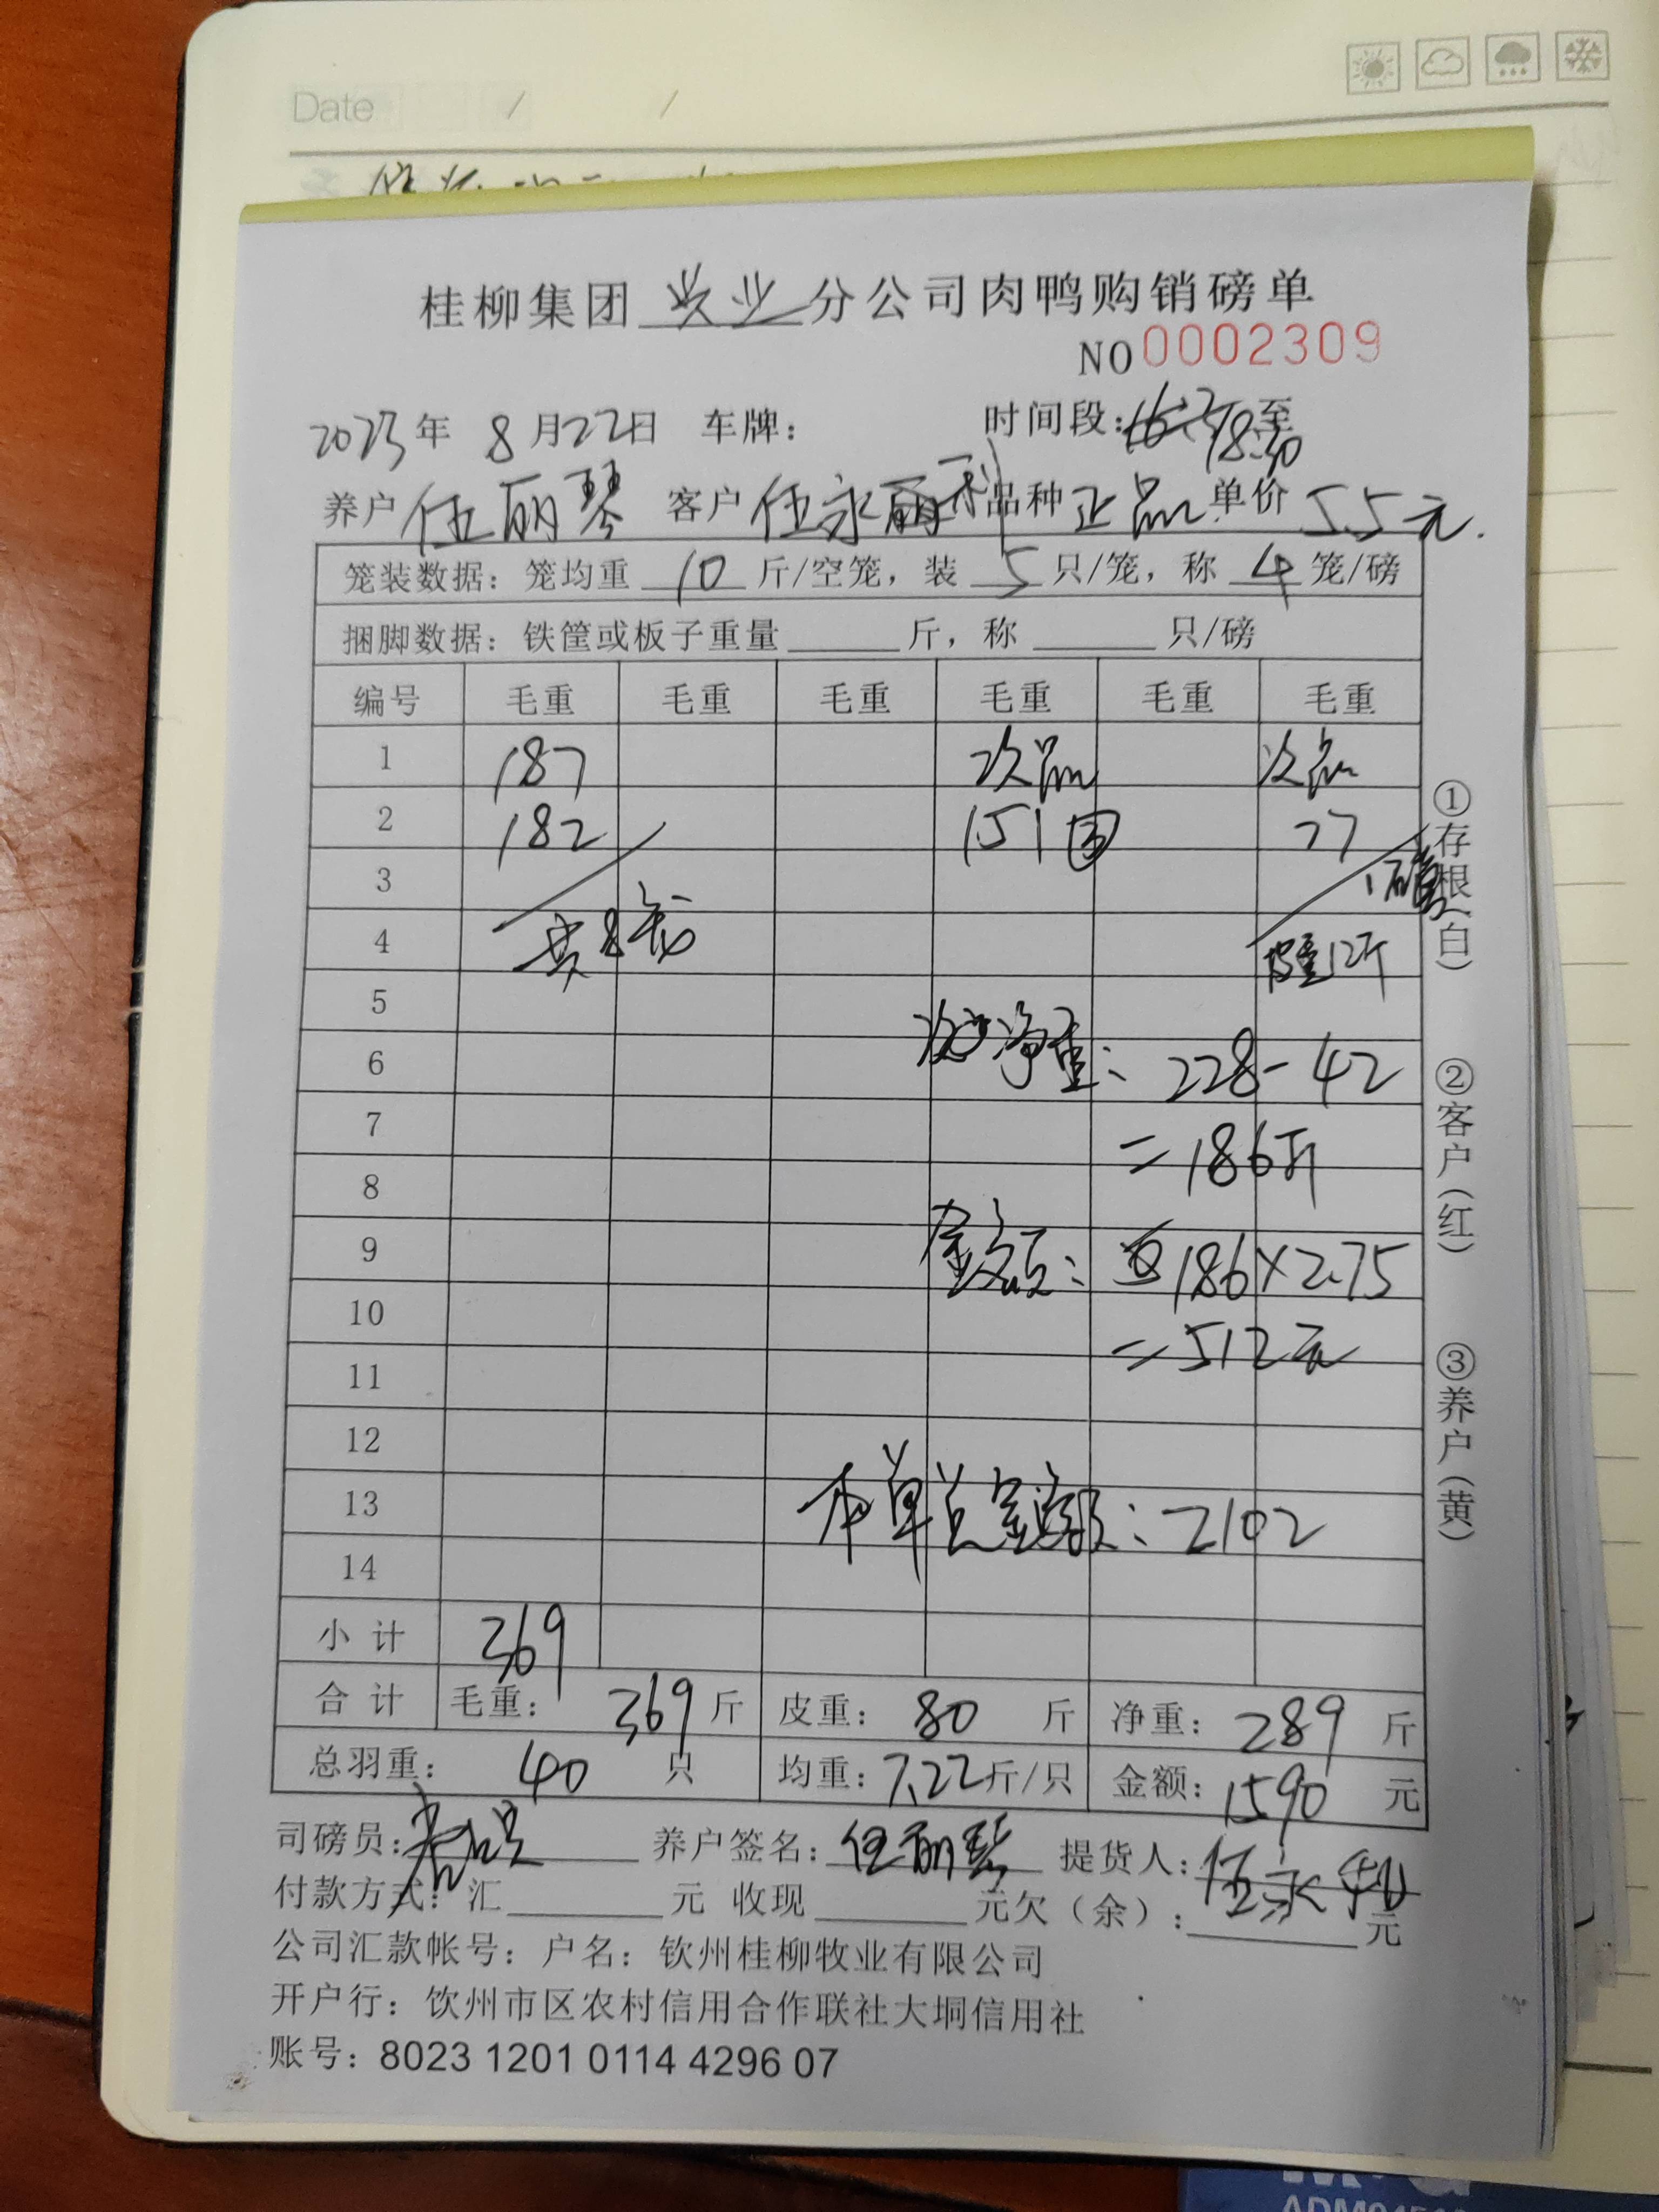 Date / /
桂柳集团兴业分公司肉鸭购销磅单
NO 0002309
2023年 8月22日 车牌： 时间段： 至 18:30
养户 伍丽琴 客户 伍永利 品种 正品 单价 5.5元.
笼装数据：笼均重 10 斤/空笼，装 5 只/笼，称 4 笼/磅
捆脚数据：铁筐或板子重量______斤，称______只/磅
编号 毛重 毛重 毛重 毛重 毛重 毛重
1 187 次品 次品
2 182 151 77
3
4 共8笼 皮重12斤
5
6 次品净重：228-42
7 =186斤
8
9 金额：186×2.75
10 =512元
11
12
13 本单总金额：2102
14
小计 369
合计 毛重：369斤 皮重：80斤 净重：289斤
总羽重：40只 均重：7.22斤/只 金额：1590元
司磅员： 养户签名：伍丽琴 提货人：伍永利
付款方式：汇______元 收现______元欠（余）：______元
公司汇款帐号：户名：钦州桂柳牧业有限公司
开户行：钦州市区农村信用合作联社大垌信用社
账号：8023 1201 0114 4296 07
①存根（白）
②客户（红）
③养户（黄）